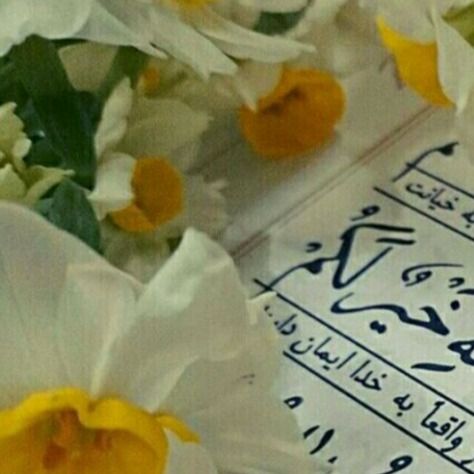 به خیانت
خَیْرٌ لَکُمْ
واقعاً به خدا ایمان